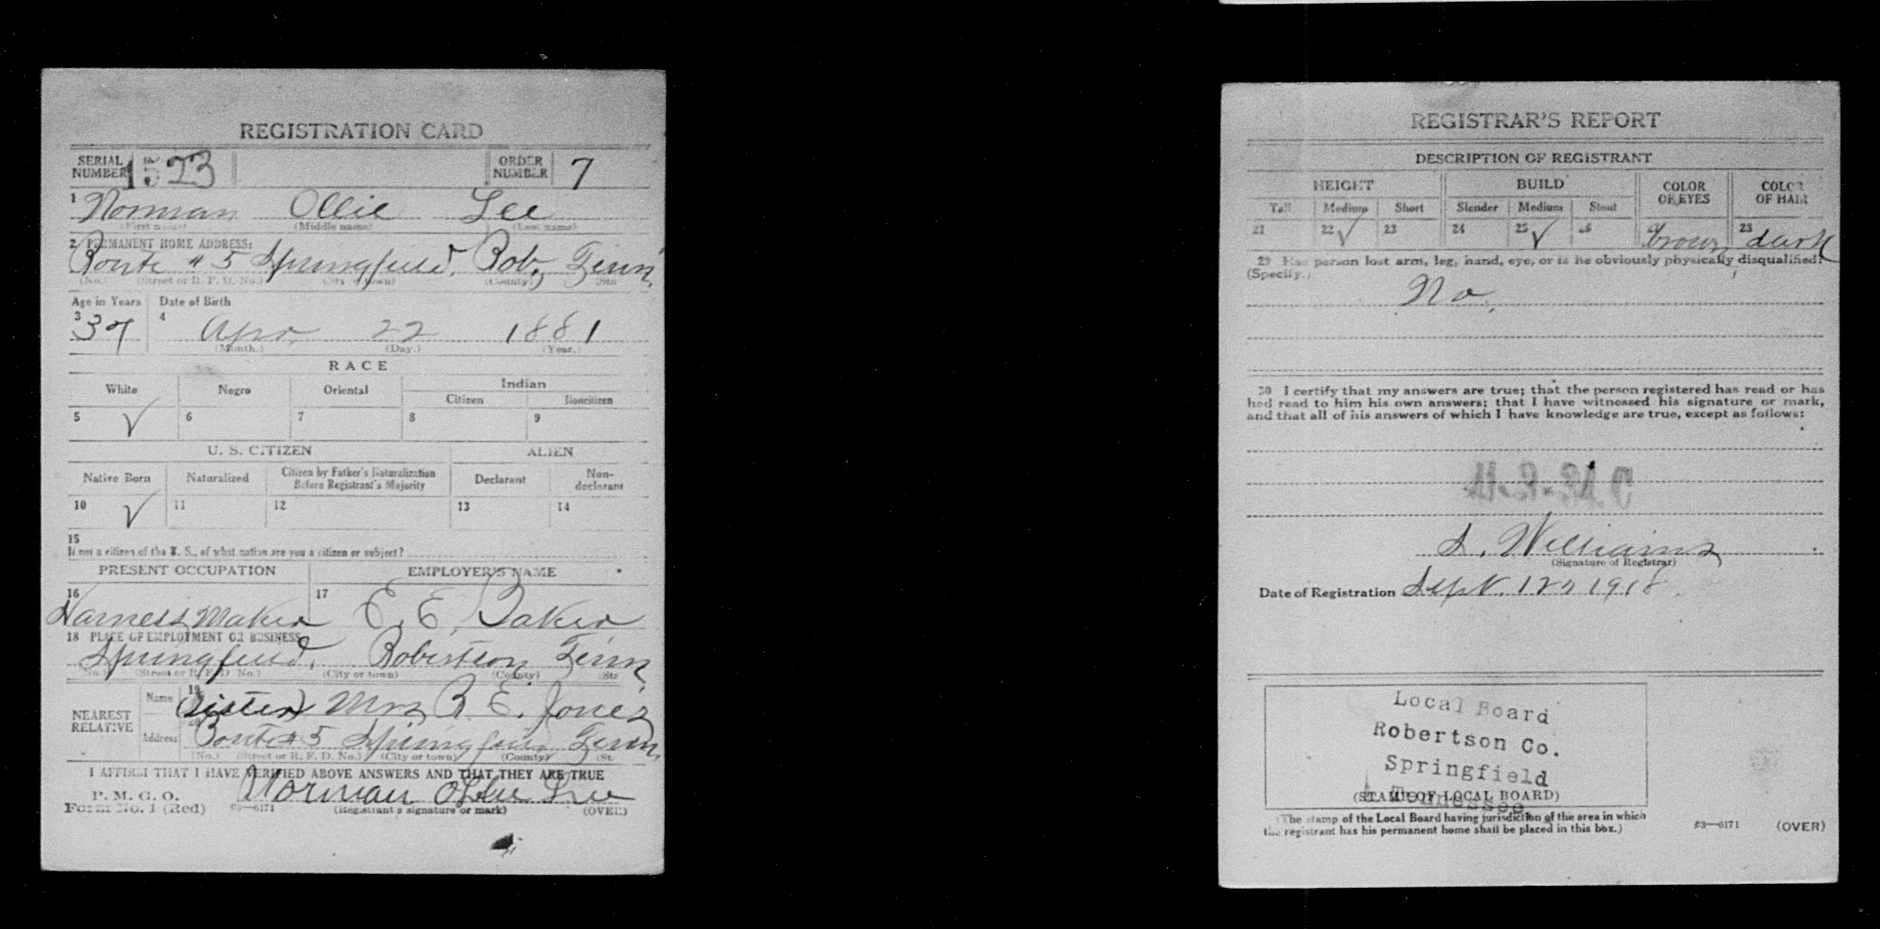 REGISTRATION CARD
SERIAL NUMBER 1523 ORDER NUMBER 7
1 Norman Ollie Lee
(First name) (Middle name) (Last name)
2 PERMANENT HOME ADDRESS:
Route #5 Springfield, Rob, Tenn
(No.) (Street or R. F. D. No.) (City or town) (County) (State)
Age in Years Date of Birth
3 37 4 Apr. 22 1881
(Month.) (Day.) (Year.)
RACE
White Negro Oriental Indian
Citizen Noncitizen
5 ✓ 6 7 8 9
U. S. CITIZEN ALIEN
Native Born Naturalized Citizen by Father's Naturalization Before Registrant's Majority Declarant Non-declarant
10 ✓ 11 12 13 14
15
If not a citizen of the U. S., of what nation are you a citizen or subject?
PRESENT OCCUPATION EMPLOYER'S NAME
16 Harness Maker 17 E. E. Baker
18 PLACE OF EMPLOYMENT OR BUSINESS
Springfield, Robertson Tenn,
(No.) (Street or R. F. D. No.) (City or town) (County) (State)
NEAREST RELATIVE Name 19 (Sister) Mrs R. E. Jones
Address Route #5 Springfield Tenn,
(No.) (Street or R. F. D. No.) (City or town) (County) (State)
I AFFIRM THAT I HAVE VERIFIED ABOVE ANSWERS AND THAT THEY ARE TRUE
P. M. G. O.
Form No. 1 (Red) 03—6171 Norman Ollie Lee
(Registrant's signature or mark) (OVER)
REGISTRAR'S REPORT
DESCRIPTION OF REGISTRANT
HEIGHT BUILD COLOR OF EYES COLOR OF HAIR
Tall Medium Short Slender Medium Stout
21 22 ✓ 23 24 25 ✓ 26 27 brown 28 dark
29 Has person lost arm, leg, hand, eye, or is he obviously physically disqualified?
(Specify.)
No,
30 I certify that my answers are true; that the person registered has read or has
had read to him his own answers; that I have witnessed his signature or mark,
and that all of his answers of which I have knowledge are true, except as follows:
Williams
(Signature of Registrar)
Date of Registration Sept. 12, 1918.
Local Board
Robertson Co.
Springfield
Tennessee
(STAMP OF LOCAL BOARD)
(The stamp of the Local Board having jurisdiction of the area in which
the registrant has his permanent home shall be placed in this box.)
03—6171 (OVER)